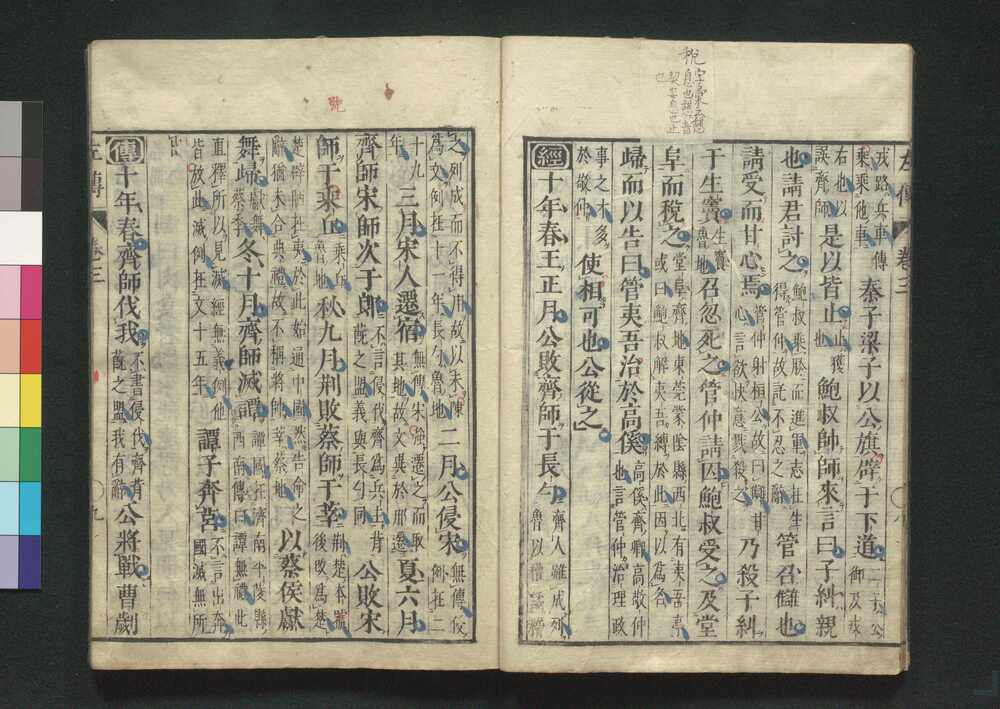 戎路兵車傳乘乘他車秦子梁子以公旗辟于下道二子公御及戎
右也以誤齊師是以皆止止獲也鮑叔帥師來言曰子糾親
也請君討之鮑叔乘勝而進軍志在生得管仲故託不忍之辭管召讎也
請受而甘心焉管仲射桓公故曰讎甘心言欲快意戮殺之乃殺子糾
于生竇生竇魯地召忽死之管仲請囚鮑叔受之及堂
阜而稅之堂阜齊地東莞蒙陰縣西北有夷吾亭或曰鮑叔解夷吾縛於此因以爲名
歸而以告曰管夷吾治於高傒高傒齊卿高敬仲也言管仲治理政
事之才多於敬仲使相可也公從之
經十年春王正月公敗齊師于長勺齊人雖成列魯以權譎稽
左傳 卷三
之列成而不得用故以未陳爲文例在十一年長勺魯地二月公侵宋無傳侵例在二
十九年三月宋人遷宿無傳宋強遷之而取其地故文異於邢遷夏六月
齊師宋師次于郎不言侵伐齊爲兵主背蔇之盟義與長勺同公敗宋
師于乘丘乘丘魯地秋九月荊敗蔡師于莘荊楚本號後改爲楚
楚辟陋在夷於此始通中國然告命之辭猶未合典禮故不稱將帥莘蔡地以蔡侯獻
舞歸獻舞蔡季冬十月齊師滅譚譚國在濟南平陵縣西南傳曰譚無禮此
直釋所以見滅經無義例他皆放此滅例在文十五年譚子奔莒不言出奔國滅無所
出
傳十年春齊師伐我不書侵伐齊背蔇之盟我有辭公將戰曹劌
左傳 卷三 九